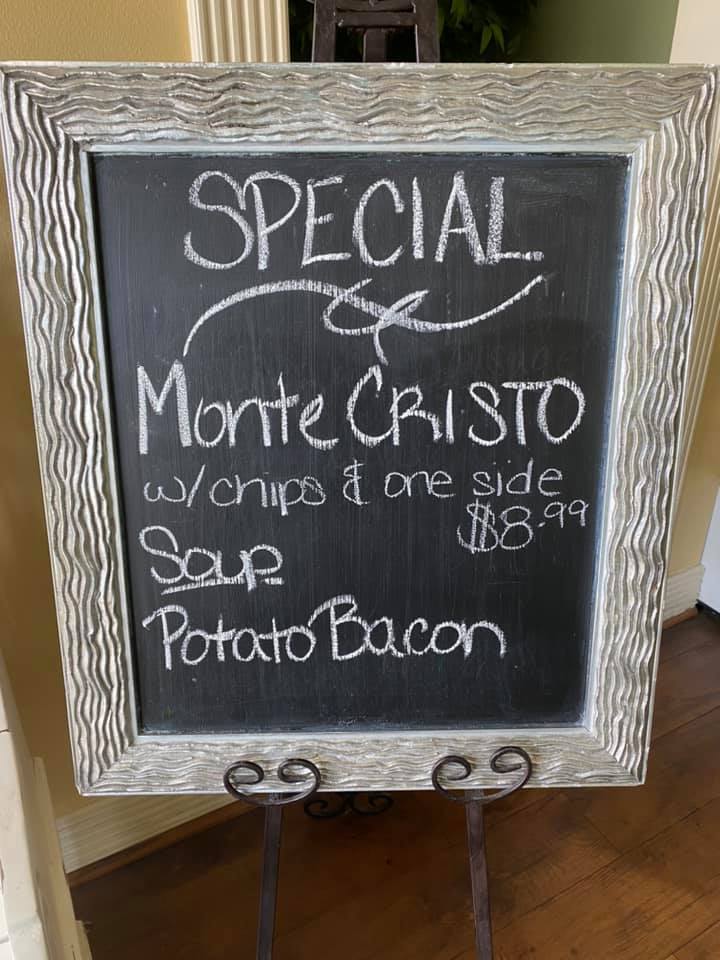 SPECIAL
Monte CRISTO
w/chips & one side
$8.99
Soup
Potato Bacon